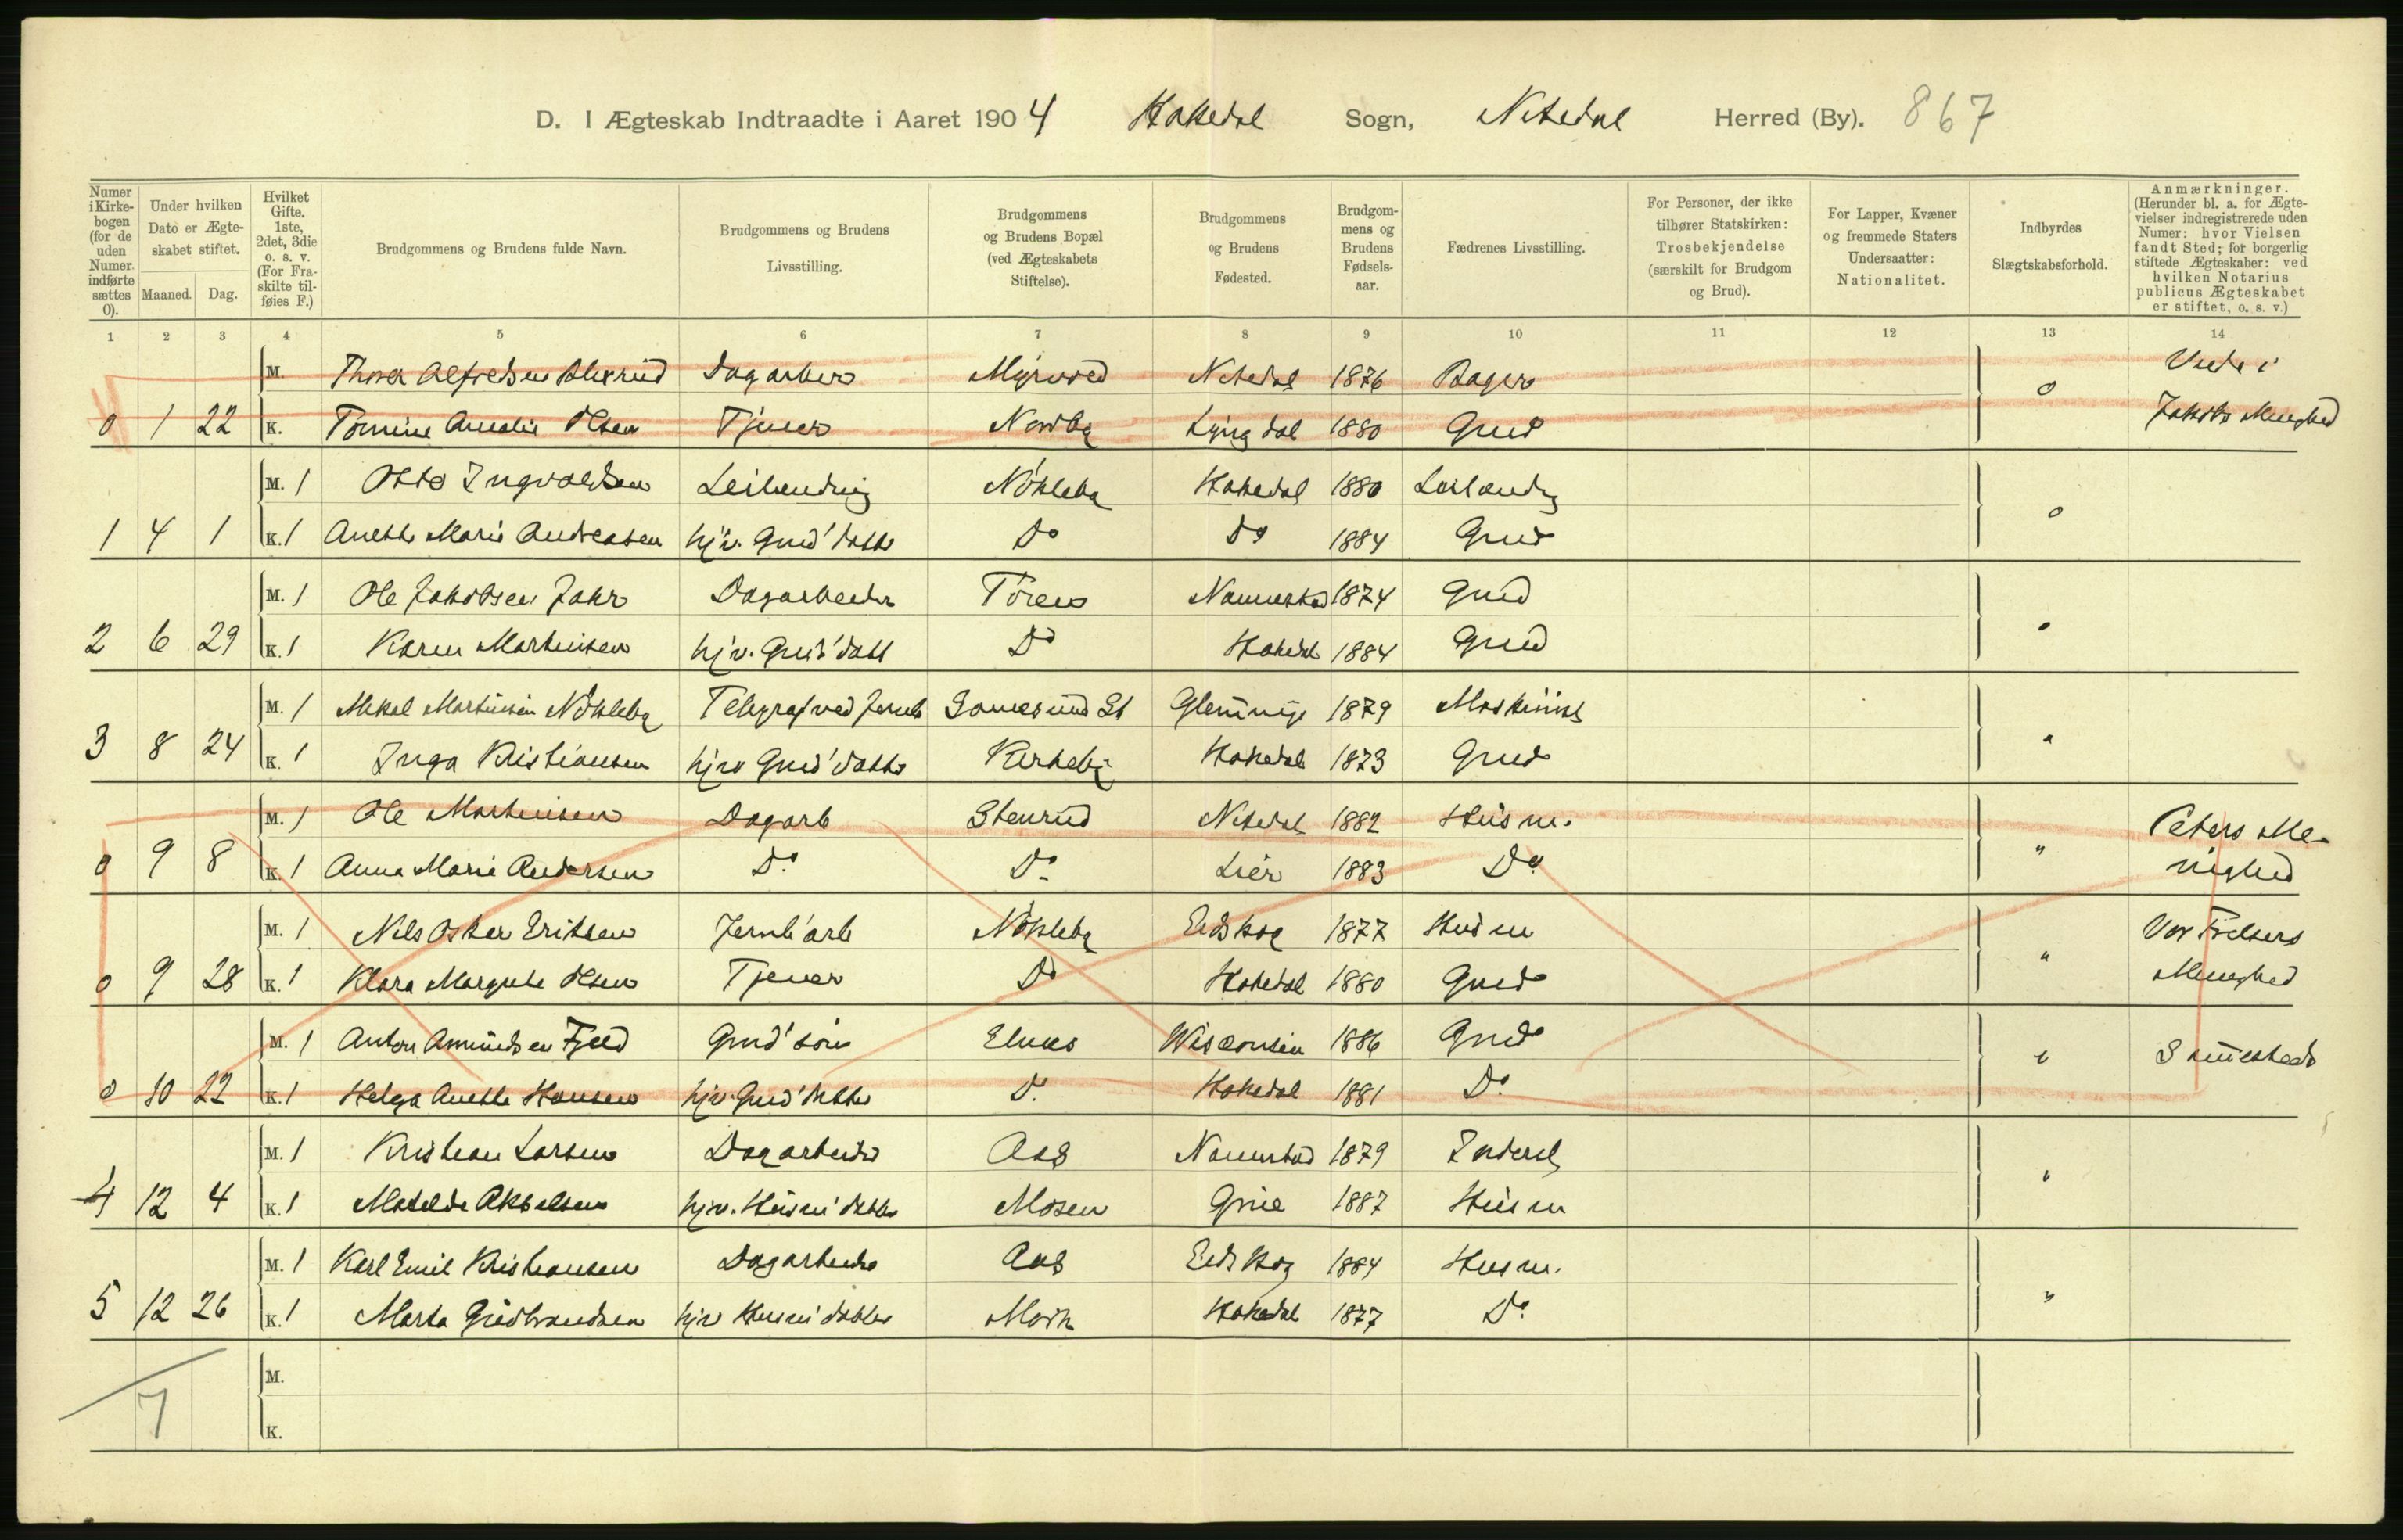 D. I Ægteskab Indtraadte i Aaret 1904 Hakedal Sogn, Nitedal Herred (By). 867
Numer i Kirkebogen (for de uden Numer indførte sættes 0). Under hvilken Dato er Ægteskabet stiftet. Maaned. Dag. Hvilket Gifte. 1ste, 2det, 3die o. s. v. (For Fraskilte tilføies F.) Brudgommens og Brudens fulde Navn. Brudgommens og Brudens Livsstilling. Brudgommens og Brudens Bopæl (ved Ægteskabets Stiftelse). Brudgommens og Brudens Fødested. Brudgommens og Brudens Fødselsaar. Fædrenes Livsstilling. For Personer, der ikke tilhører Statskirken: Trosbekjendelse (særskilt for Brudgom og Brud). For Lapper, Kvæner og fremmede Staters Undersaatter: Nationalitet. Indbyrdes Slægtskabsforhold. Anmærkninger. (Herunder bl. a. for Ægtevielser indregistrerede uden Numer: hvor Vielsen fandt Sted; for borgerlig stiftede Ægteskaber: ved hvilken Notarius publicus Ægteskabet er stiftet, o. s. v.)
1 2 3 4 5 6 7 8 9 10 11 12 13 14
M. Alfredsen Dagarber Nitedal 1876 Bager 0 i
0 1 22 K. Amalie Olsen Tjener Nordby Lyngdal 1880 Grd Jakobs Menghed
M. 1 Otto Ingvoldsen Leilending Nökleby Hakedal 1880 Leilending
1 4 1 K. 1 Anette Marie Andreasen hjv. Grd' datte Do Do 1884 Grd 0
M. 1 Ole Jakobsen Jahr Dagarbeider Töien Nannestad 1874 Grd
2 6 29 K. 1 Karen Martinsen hjv. Grd' datt Do Hakedal 1884 Grd "
M. 1 Mikal Martinsen Nökleby Telegraf ved Jernb St Glemminge 1879 Maskinist
3 8 24 K. 1 Inga Kristiansen hjv Grd' datte Kirkeby Hakedal 1873 Grd "
M. 1 Ole Martinsen Dagarb Stenrud Nitedal 1882 Husm. Peters Me-
0 9 8 K. 1 Anna Marie Andersen Do Do Lier 1883 Do " nighed
M. 1 Nils Oskar Eriksen Jernb'arb Nökleby Eidskog 1877 Husm Vor Frelsers
0 9 28 K. 1 Klara Margrete Olsen Tjener Do Hakedal 1880 Grd " Menghed
M. 1 Anton Amundsen Fjeld Grd' sön Elnes Wisconsin 1886 Grd " Sammesteds
0 10 22 K. 1 Helga Anette Hansen hjv. Grd' datte Do Hakedal 1881 Do
M. 1 Kristian Larsen Dagarbeider Aas Nannestad 1879 Inderst
4 12 4 K. 1 Matilde Akselsen hjv. Husm' datte Mosen Grue 1887 Husm "
M. 1 Karl Emil Kristiansen Dagarbeider Aas Eidskog 1884 Husm.
5 12 26 K. 1 Marta Gudbrandsen hjv Husm' datter Mork Hakedal 1877 Do "
M.
7 K.